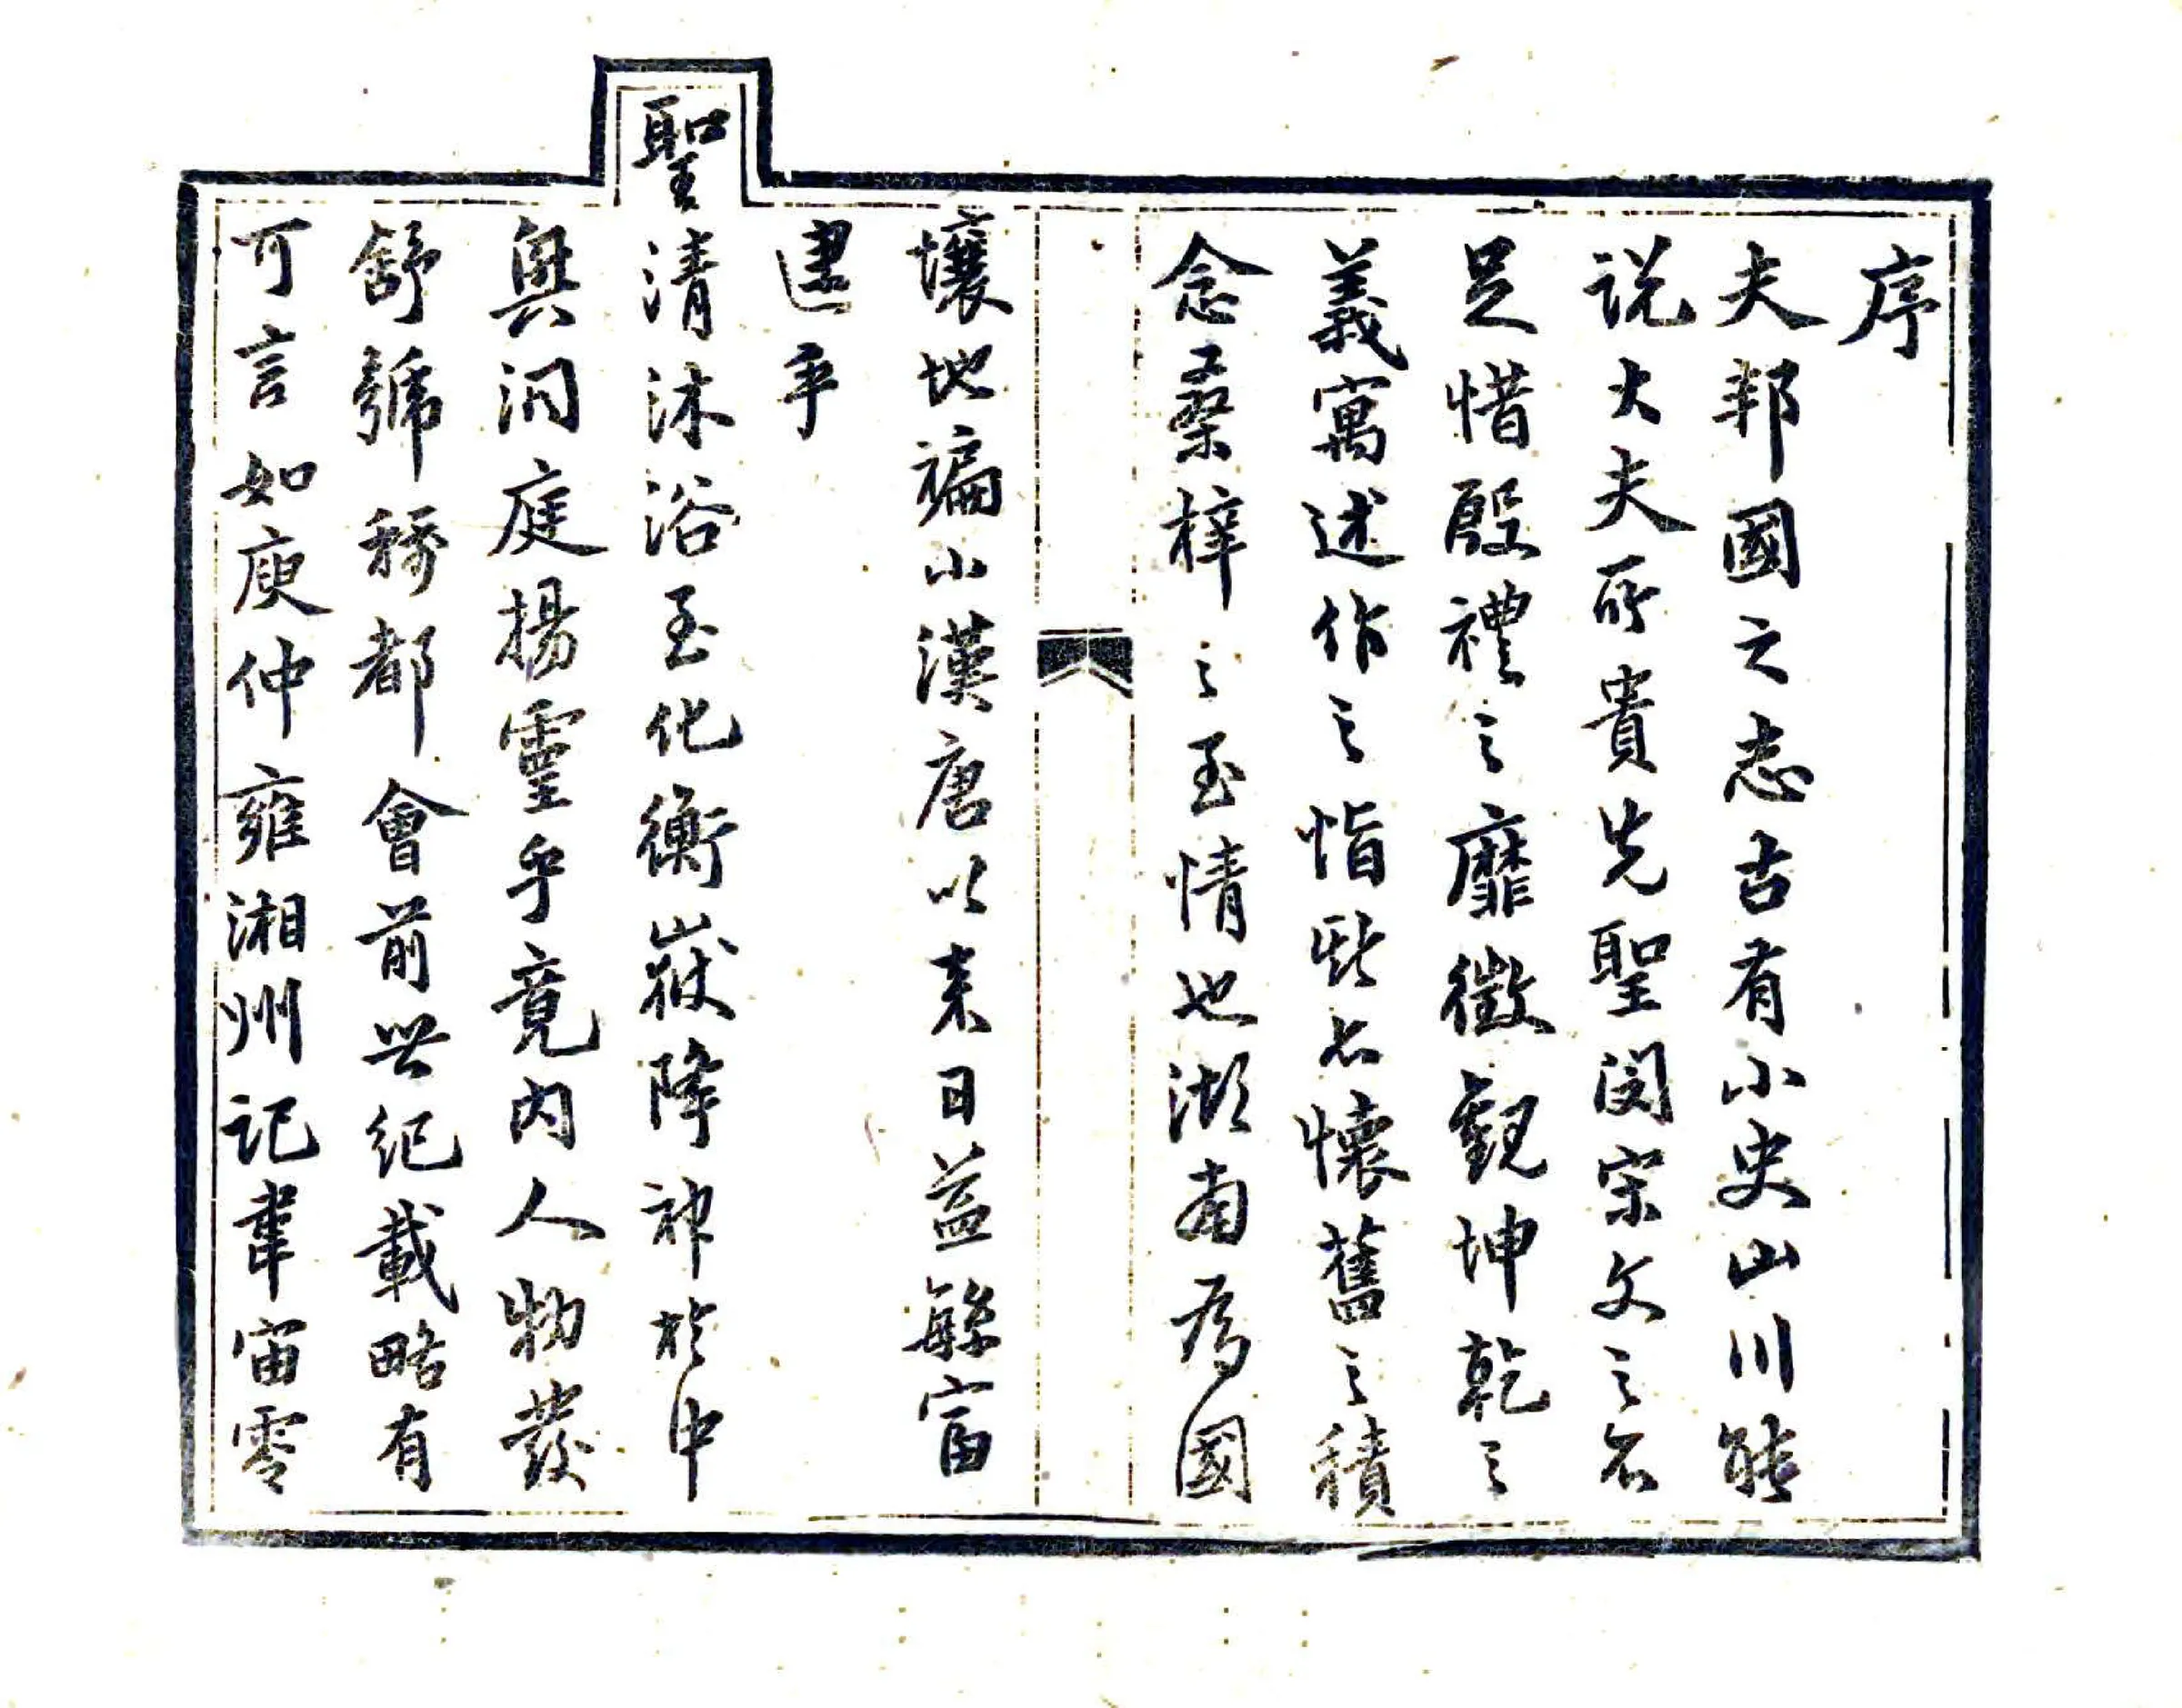 序
夫邦國之志古有小史山川能
说大夫所貴先聖閔宋文之不
足惜殷禮之靡徵觀坤乾之
義寓述作之恉斯亦懷舊之積
念桑梓之至情也湖南为國
壤地褊小漢唐以来日益緐富
逮乎
聖清沐浴至化衡嶽降神於中
興洞庭揚靈乎竟内人物發
舒號稱都會前世纪載略有
可言如庾仲雍湘州记韋宙零